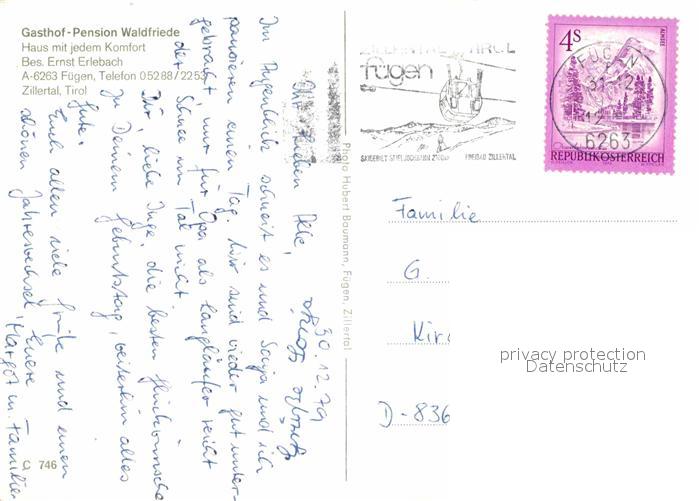 Gasthof-Pension Waldfriede
Haus mit jedem Komfort
Bes. Ernst Erlebach
A-6263 Fügen, Telefon 05288/2253
Zillertal, Tirol
30.12.79
Ihr Lieben Alle,
Im Augenblick schneit es und Sonja und ich
pausieren einen Tag. Wir sind wieder gut unter-
gebracht, nur für Opa als Langläufer reicht
der Schnee im Tal nicht.
Dir liebe Inge, die besten Glückwünsche
zu Deinem Geburtstag, weiterhin alles
Gute.
Euch allen viele Grüße und einen
schönen Jahreswechsel, Eure
Margot u. Familie
Q 746
Photo Hubert Baumann, Fügen, Zillertal
ZILLERTAL TIROL
fügen
SKIGEBIET SPIELJOCHBAHN FREIBAD ZILLERTAL
4S
ALMSEE
REPUBLIK ÖSTERREICH
FÜGEN
6263
Familie
G.
Kir
D-836
privacy protection
Datenschutz